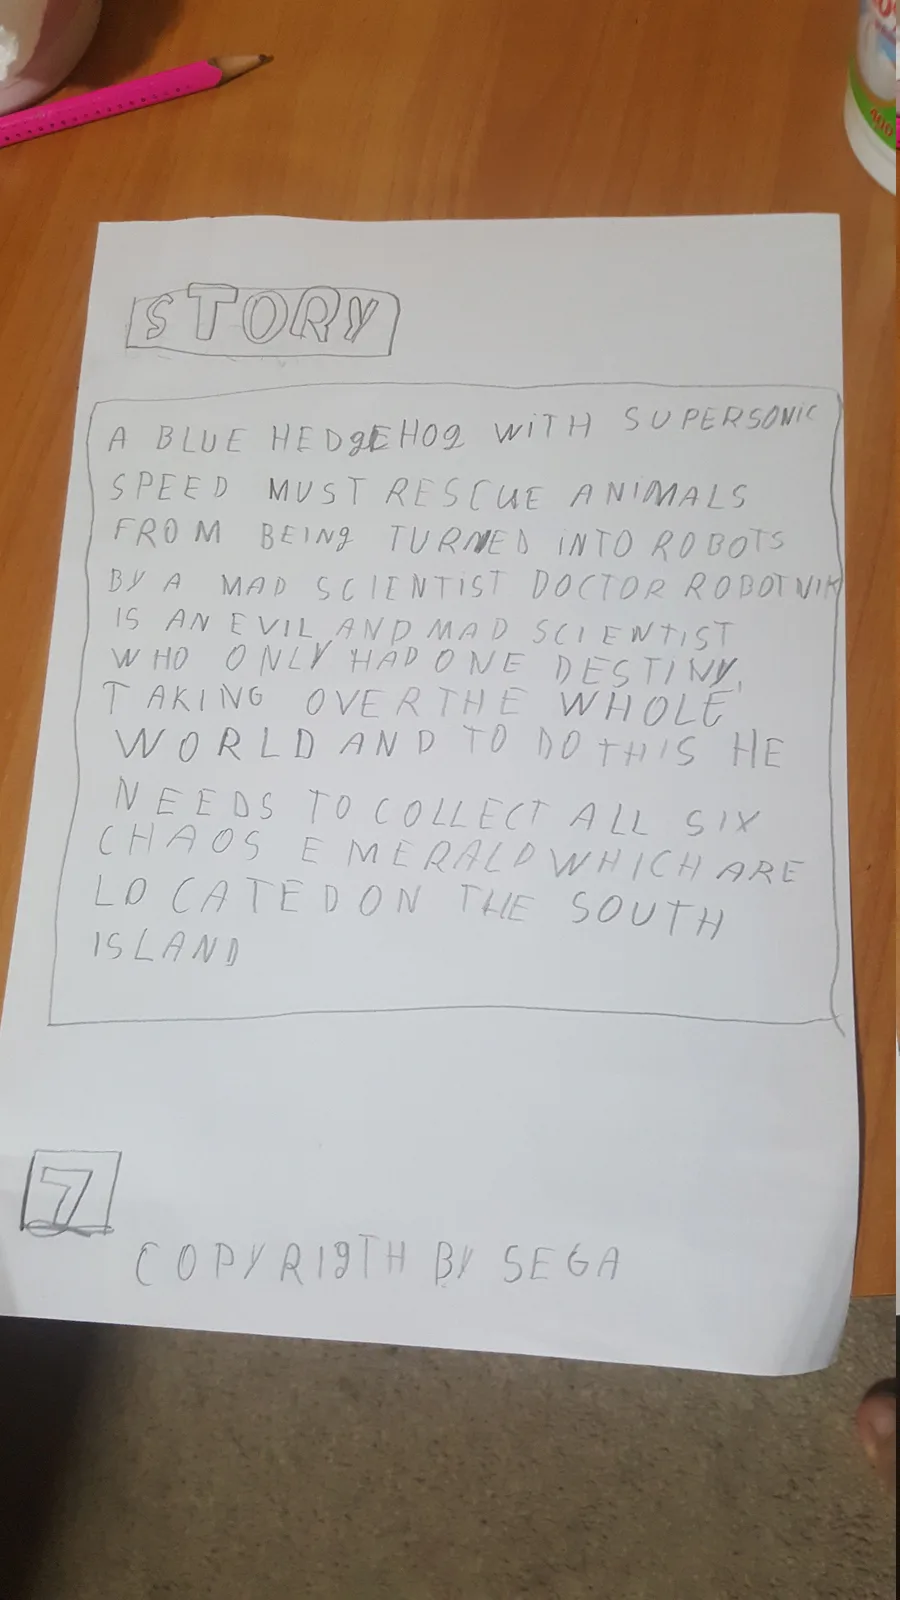 STORY
A BLUE HEDgEHOg WiTH SUPERSONiC
SPEED MUST RESCUE ANiMALS
FROM BEINg TURNED iNTO ROBOTS
BY A MAD SCIENTiST DOCTOR ROBOTNIK
IS AN EVIL AND MAD SCIENTIST
WHO ONLY HAD ONE DESTINY,
TAKING OVER THE WHOLE
WORLD AND TO DO THIS HE
NEEDS TO COLLECT ALL SIX
CHAOS EMERALD WHICH ARE
LOCATED ON THE SOUTH
ISLAND
7
COPYRIgTH BY SEGA
400